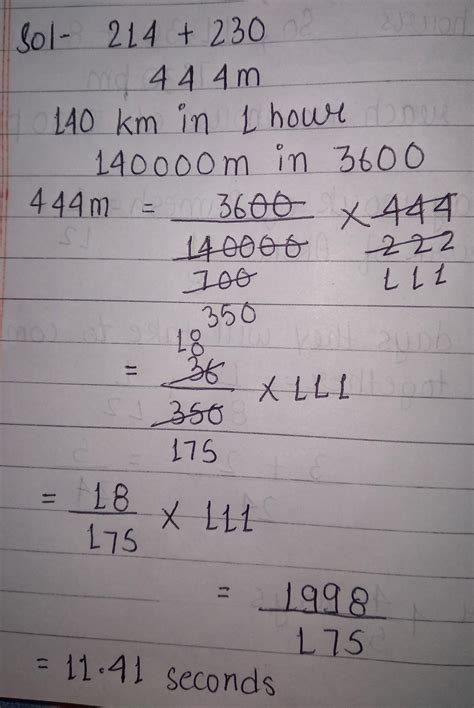 Sol- 214 + 230
444m
140 km in 1 hour
140000m in 3600
444m = 3600 × 444
140000 222
700 111
350
18
= 36 × 111
350
175
= 18 × 111
175
= 1998
175
= 11.41 seconds